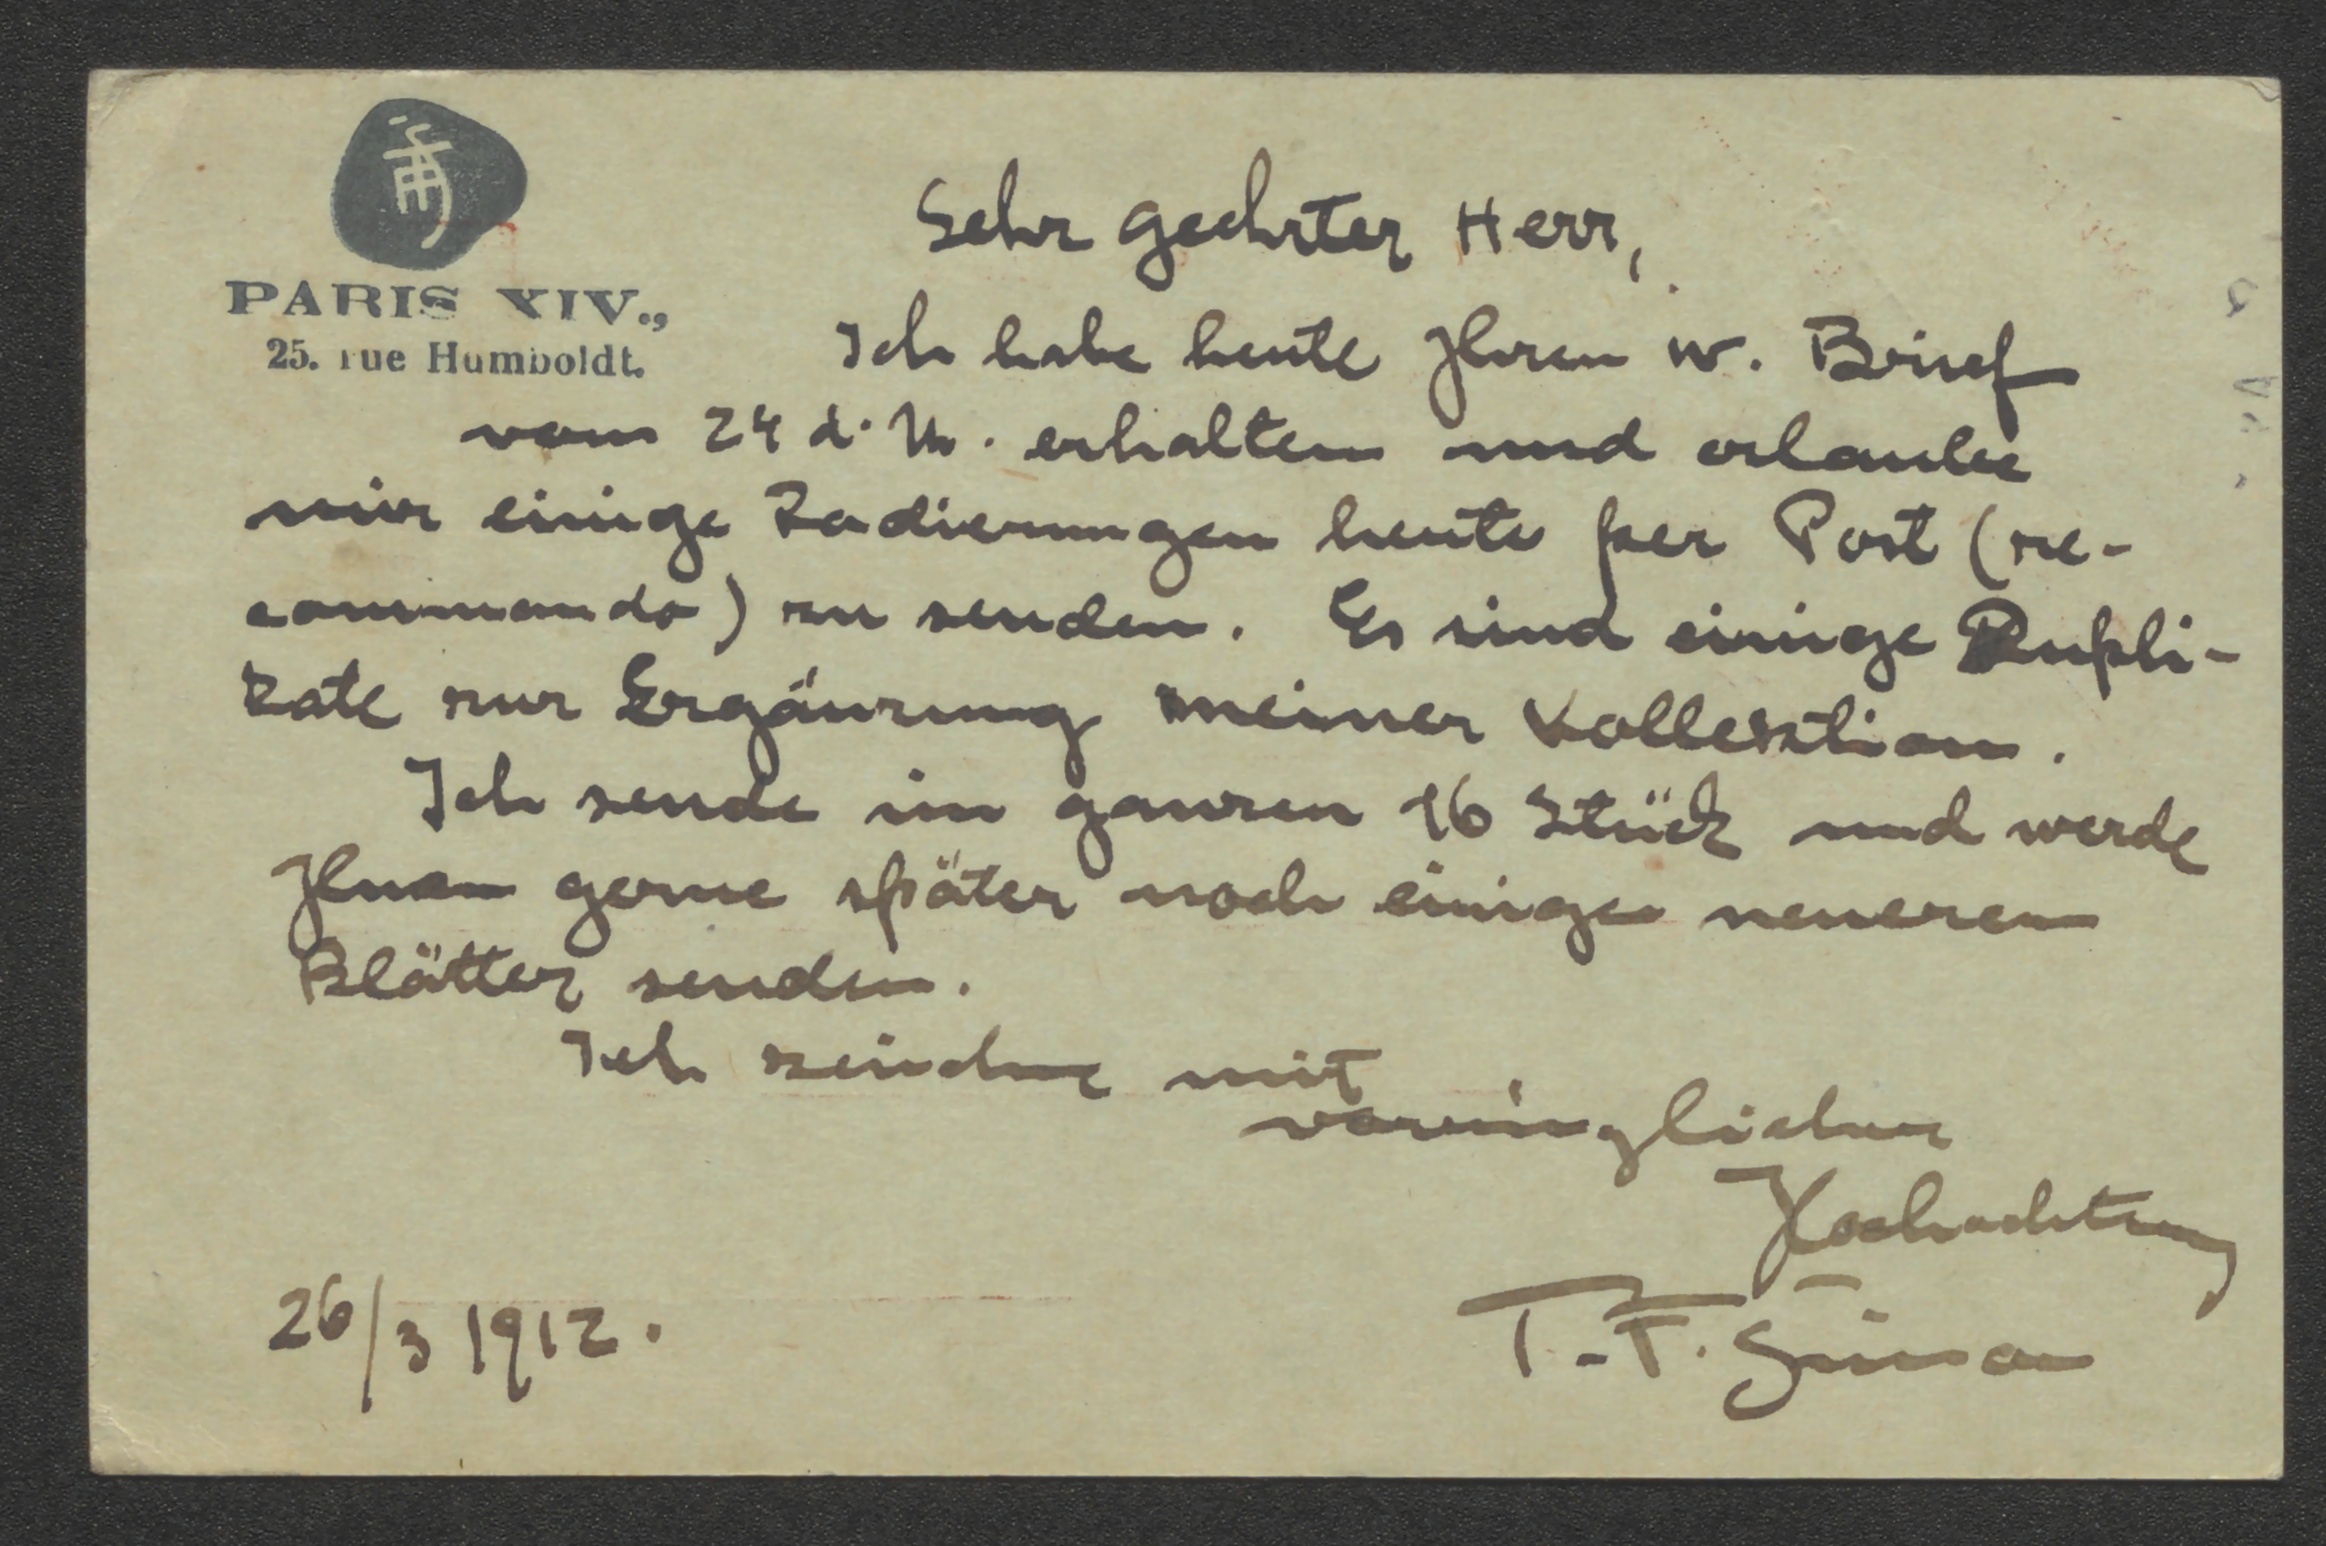 PARIS XIV.,
25. rue Humboldt.
Sehr geehrter Herr,
Ich habe heute Ihren w. Brief
vom 24 d. M. erhalten und erlaube
mir einige Radierungen heute per Post (re-
commando) zu senden. Es sind einige Dupli-
kate zur Ergänzung meiner Kollektion.
Ich sende im ganzen 16 Stück und werde
Ihnen gerne später noch einige neueren
Blätter senden.
Ich zeichne mit
vorzüglicher
Hochachtung
T. F. Šimon
26/3 1912.